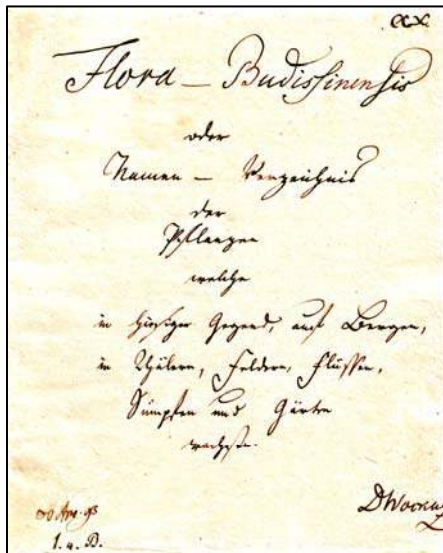 Flora – Budissinensis
oder
Namen – Verzeichnis
der
Pflanzen
welche
in hiesiger Gegend, auf Bergen,
in Thälern, Feldern, Flüssen,
Sümpfen und Gärten
wachsen.
1. a. B.